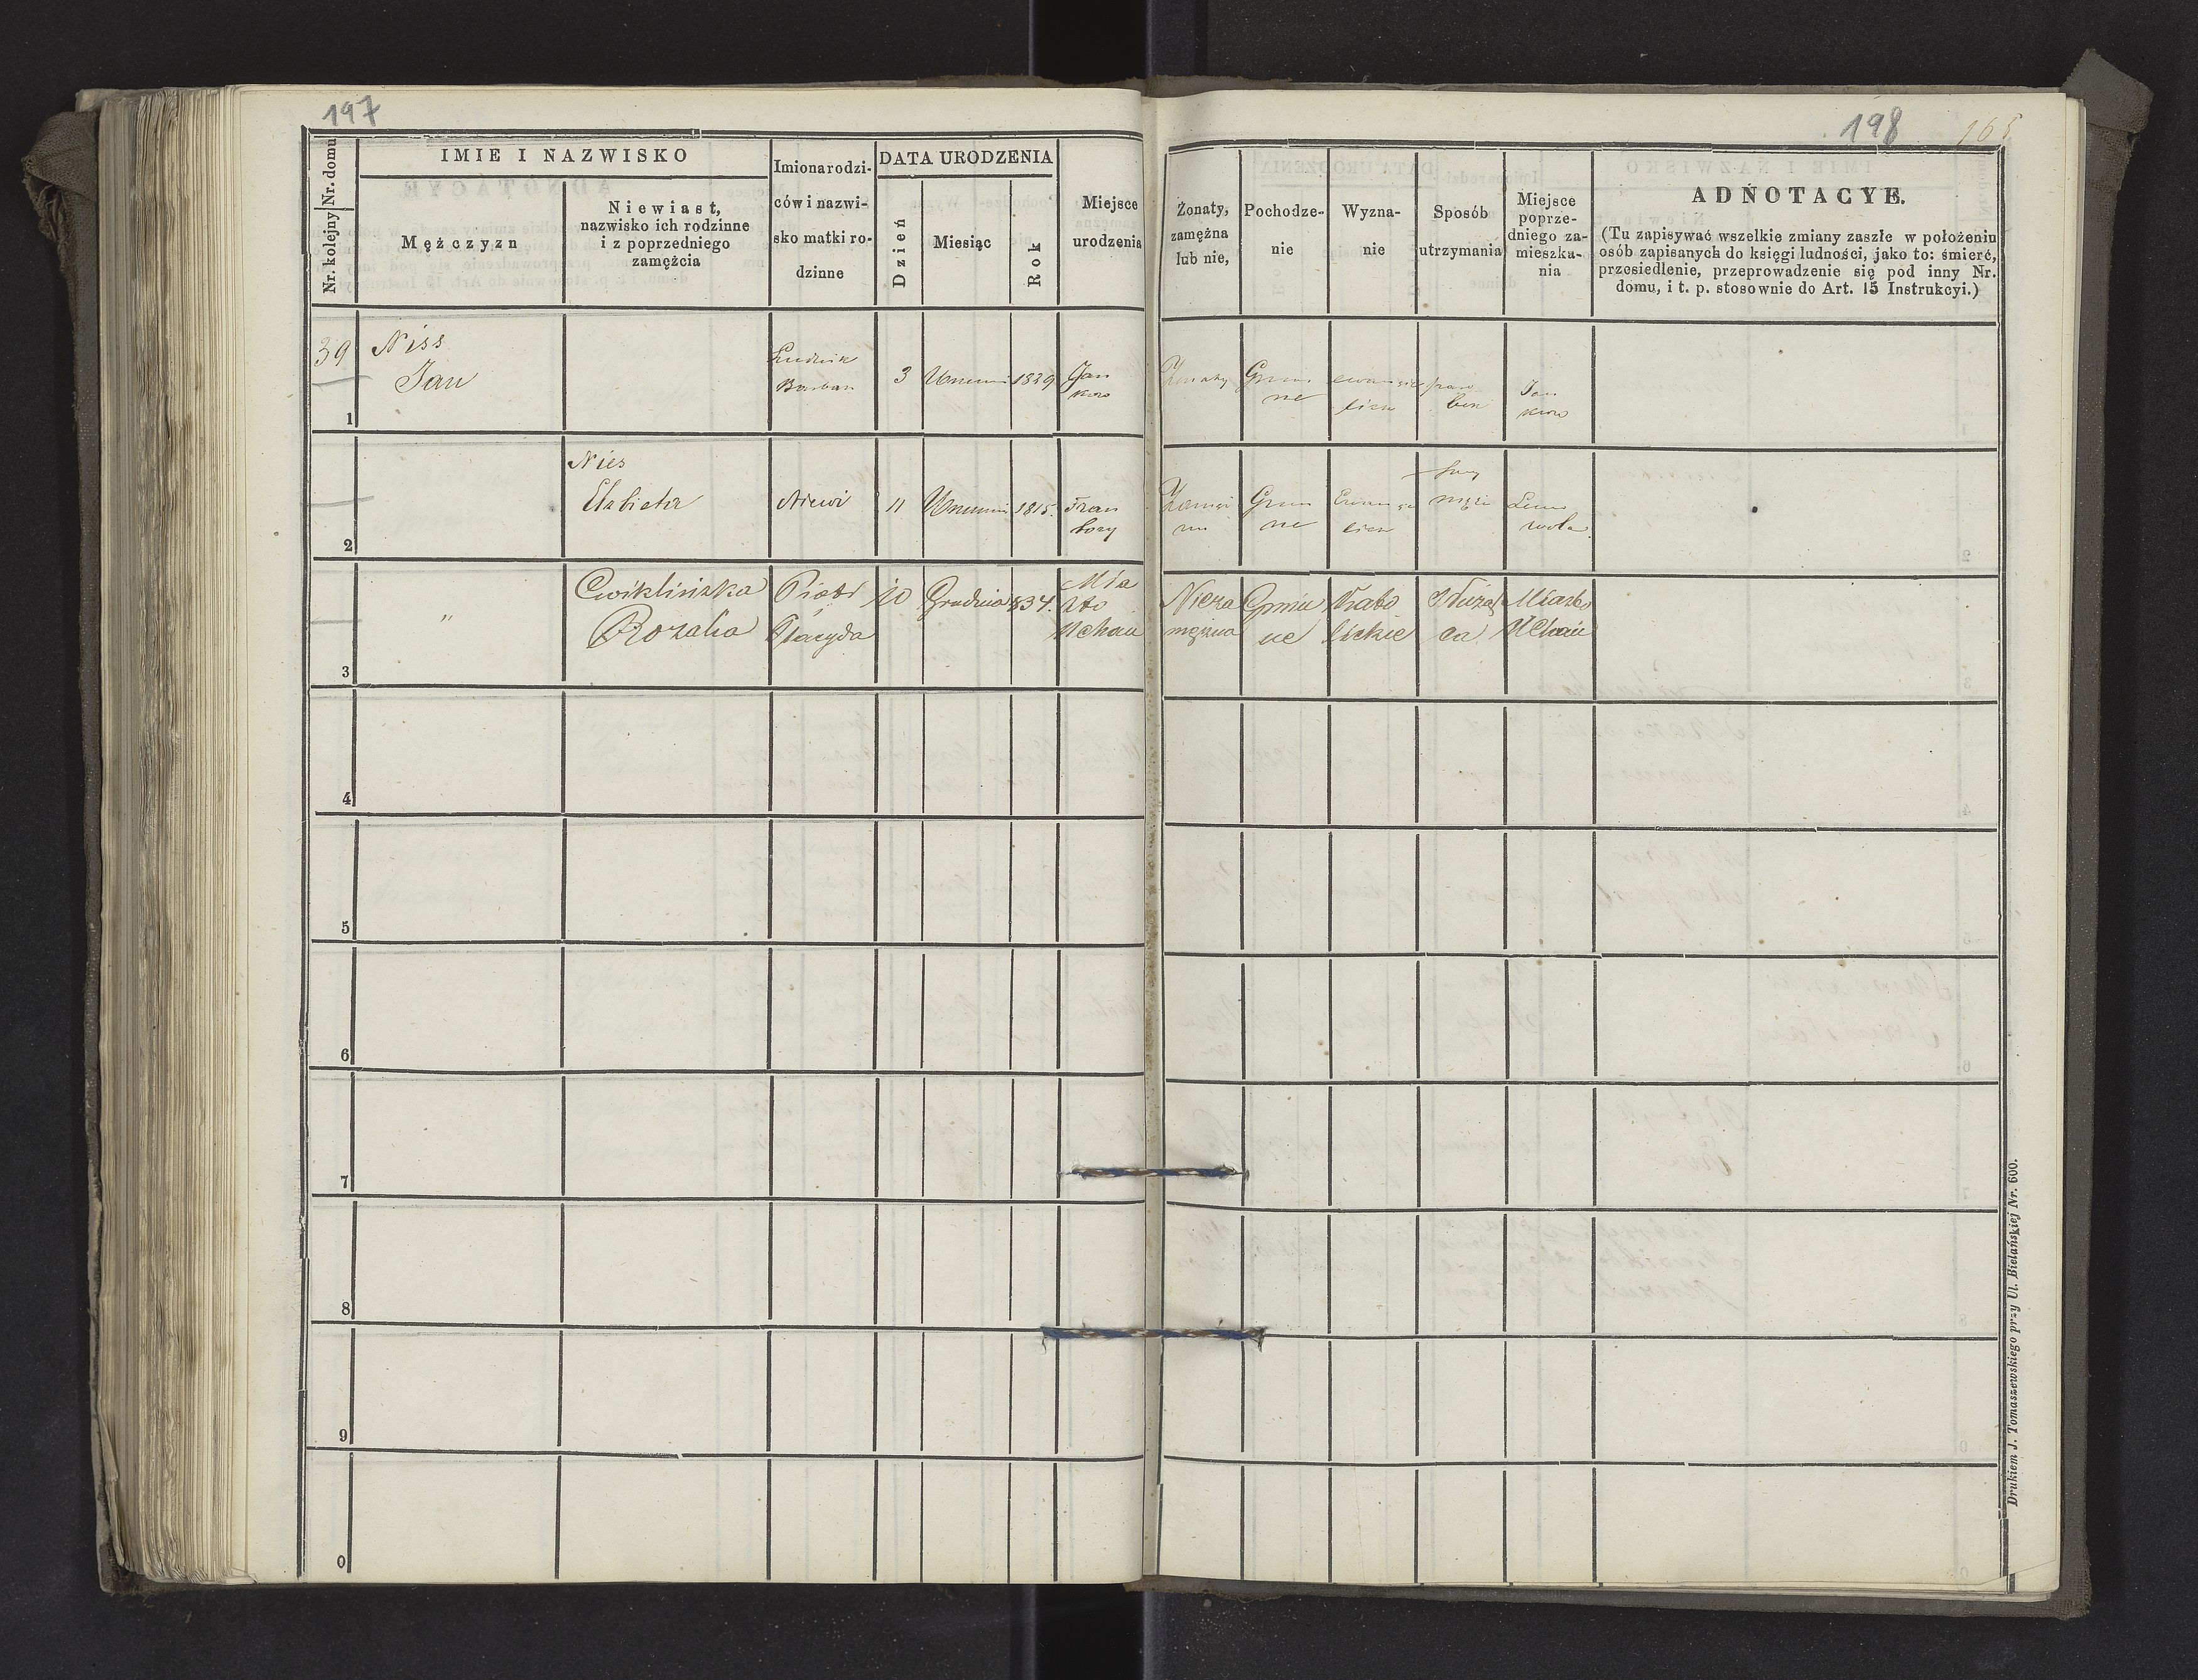 197
Nr. domu
Nr. kolejny
IMIE I NAZWISKO
Mężczyzn
Niewiast,
nazwisko ich rodzinne
i z poprzedniego
zamężcia
Imiona rodzi-
ców i nazwi-
sko matki ro-
dzinne
DATA URODZENIA
Dzień
Miesiąc
Rok
Miejsce
urodzenia
39
Niss
Jan
Ludwik
Barbar
3
1839
Jan
kow
1
Nies
Elzbieta
Niewi
11
1815.
2
"
Cwiklinska
Rozalia
Piotr
Placyda
10
Grudnia
834.
Mia
sto
Uchan
3
4
5
6
7
8
9
0
198
165
Żonaty,
zamężna
lub nie,
Pochodze-
nie
Wyzna-
nie
Sposób
utrzymania
Miejsce
poprze-
dniego za-
mieszka-
nia
ADNOTACYE.
(Tu zapisywać wszelkie zmiany zaszłe w położeniu
osób zapisanych do księgi ludności, jako to: śmierć,
przesiedlenie, przeprowadzenie się pod inny Nr.
domu, i t. p. stosownie do Art. 15 Instrukcyi.)
Zonaty
Gmin
ne
ewangie
licki
paro
bek
Jan
kow
Gmin
ne
Ewangie
licki
przy
mężu
Nieza
mężna
Gmin
ne
Kato
lickie
Służą
ca
Miasto
Uchań
Drukiem J. Tomaszewskiego przy Ul. Bielańskiej Nr. 600.